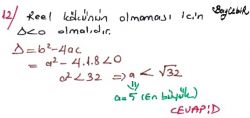 12/ Reel kökünün olmaması için
Δ<0 olmalıdır.
Δ=b²-4ac
= a²-4.1.8<0
a²<32 ⇒ a<√32
⇓
a=5 (En büyük)
CEVAP: D